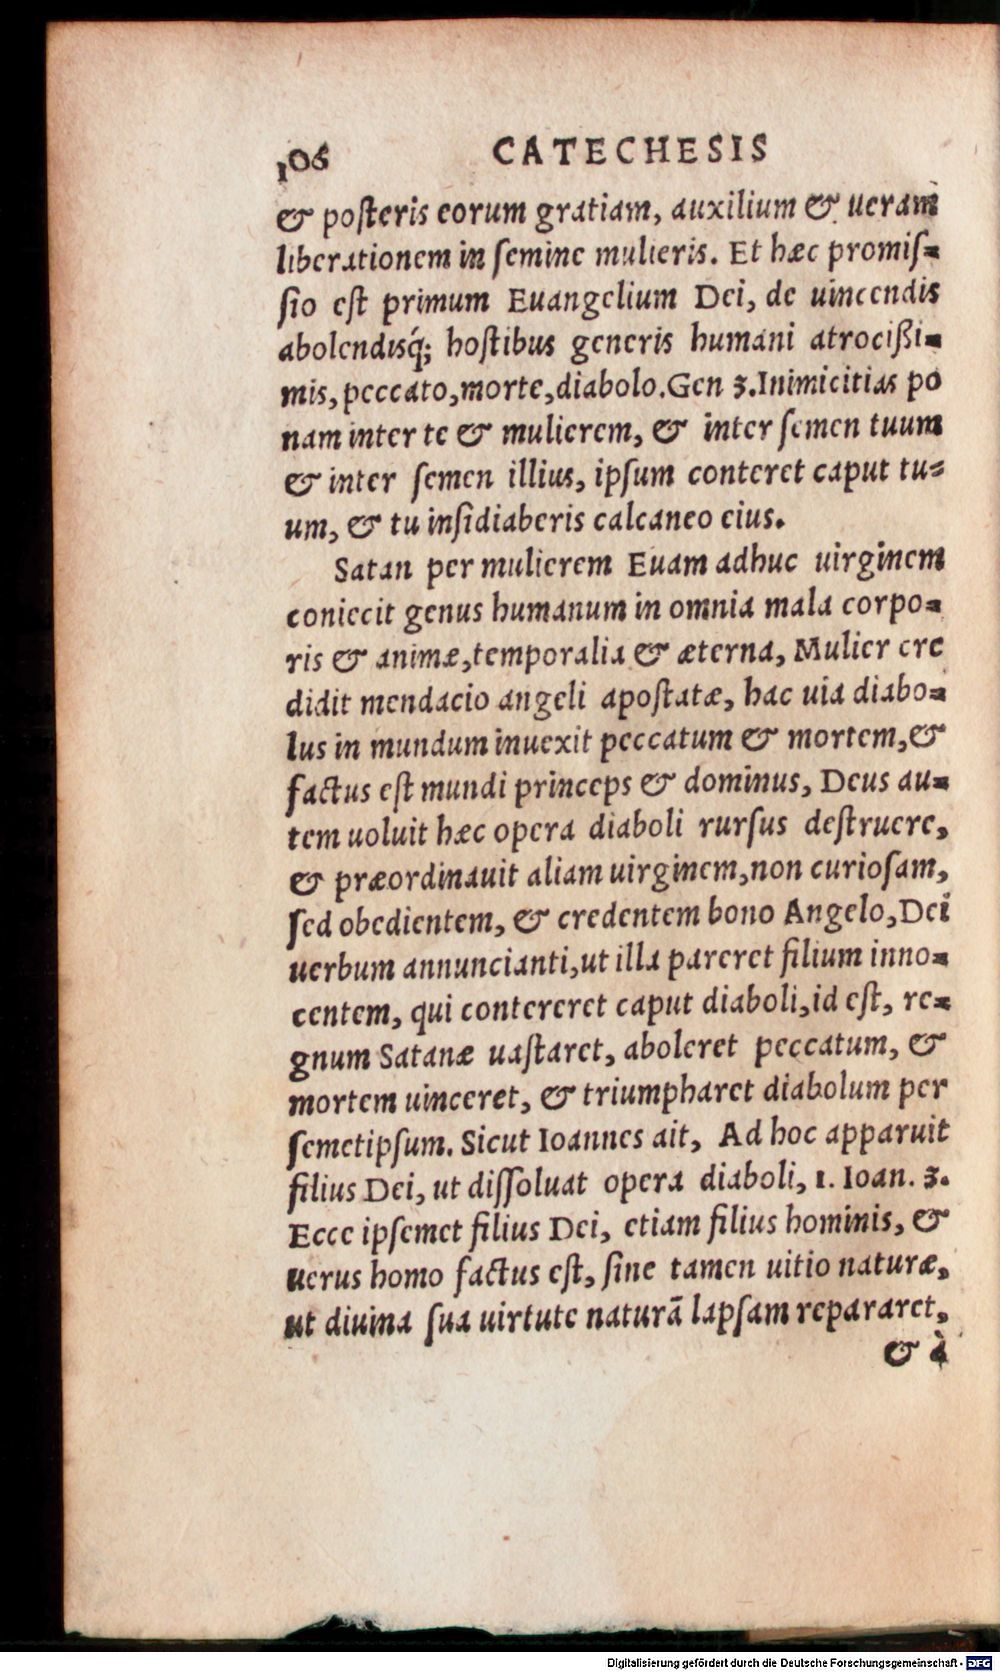 106 CATECHESIS
& poſteris eorum gratiam, auxilium & ueram
liberationem in ſemine mulieris. Et hæc promiſ-
ſio eſt primum Euangelium Dei, de uincendis
abolendisq́; hoſtibus generis humani atrocißi-
mis, peccato, morte, diabolo. Gen 3. Inimicitias po
nam inter te & mulierem, & inter ſemen tuum
& inter ſemen illius, ipſum conteret caput tu-
um, & tu inſidiaberis calcaneo eius.
Satan per mulierem Euam adhuc uirginem
coniecit genus humanum in omnia mala corpo-
ris & animæ, temporalia & æterna, Mulier cre
didit mendacio angeli apoſtatæ, hac uia diabo-
lus in mundum inuexit peccatum & mortem, &
factus eſt mundi princeps & dominus, Deus au-
tem uoluit hæc opera diaboli rurſus deſtruere,
& præordinauit aliam uirginem, non curioſam,
ſed obedientem, & credentem bono Angelo, Dei
uerbum annuncianti, ut illa pareret filium inno-
centem, qui contereret caput diaboli, id eſt, re-
gnum Satanæ uaſtaret, aboleret peccatum, &
mortem uinceret, & triumpharet diabolum per
ſemetipſum. Sicut Ioannes ait, Ad hoc apparuit
filius Dei, ut diſſoluat opera diaboli, 1. Ioan. 3.
Ecce ipſemet filius Dei, etiam filius hominis, &
uerus homo factus eſt, ſine tamen uitio naturæ,
ut diuina ſua uirtute naturã lapſam repararet,
& à
Digitalisierung gefördert durch die Deutsche Forschungsgemeinschaft - DFG